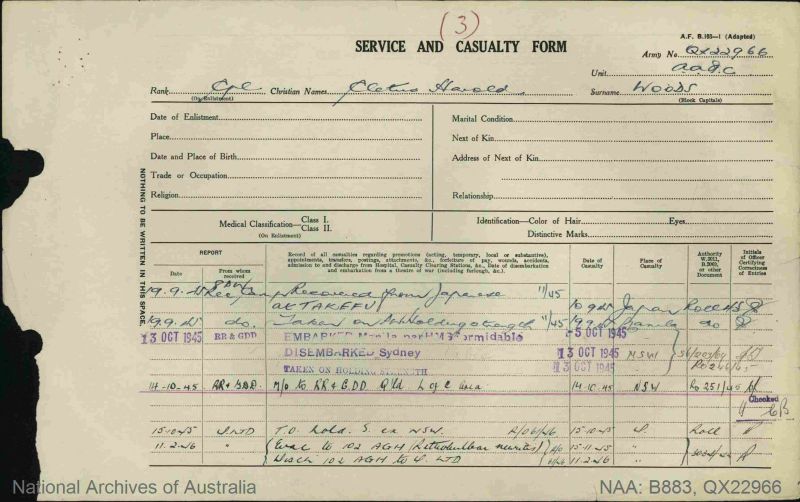 (3)
A.F. B.103—1 (Adapted)
SERVICE AND CASUALTY FORM
Army No. QX22966
Unit A.A.S.C.
Rank Cpl Christian Names Cletus Harold Surname WOODS
(On Enlistment) (Block Capitals)
Date of Enlistment
Place
Date and Place of Birth
Trade or Occupation
Religion
Marital Condition
Next of Kin
Address of Next of Kin
Relationship
Medical Classification— Class I. Class II.
(On Enlistment)
Identification—Color of Hair Eyes
Distinctive Marks
NOTHING TO BE WRITTEN IN THIS SPACE
REPORT
Date
From whom received
Record of all casualties regarding promotions (acting, temporary, local or substantive), appointments, transfers, postings, attachments, &c., forfeiture of pay, wounds, accidents, admission to and discharge from Hospital, Casualty Clearing Stations, &c. Date of disembarkation and embarkation from a theatre of war (including furlough, &c.).
Date of Casualty
Place of Casualty
Authority W.3011, B.2069, or other Document
Initials of Officer Certifying Correctness of Entries
19.9.45 Rec Camp Recovered from Japanese 11/45
at TAKEFU 10 9 45 Japan Roll
19.9.45 do. Taken on holding strength 11/45 19.9.45 Manila do
13 OCT 1945 RR & GDD EMBARKED Manila per HMS Formidable -5 OCT 1945
DISEMBARKED Sydney 13 OCT 1945 N.S.W.
TAKEN ON HOLDING STRENGTH 13 OCT 1945 Ro 246/45
14-10-45 RR & GDD M/o to RR & GDD Qld L of C Area 14.10.45 NSW Ro 251/45
Checked
15.10.45 Q LTD T.O. hold. S. ex NSW. 15-10-45 Q. Roll
11-2-46 " Evac to 102 AGH (Retrobulbar neuritis) 15-11-45
Disch 102 AGH to Q. LTD 11-2-46 "
National Archives of Australia
NAA: B883, QX22966